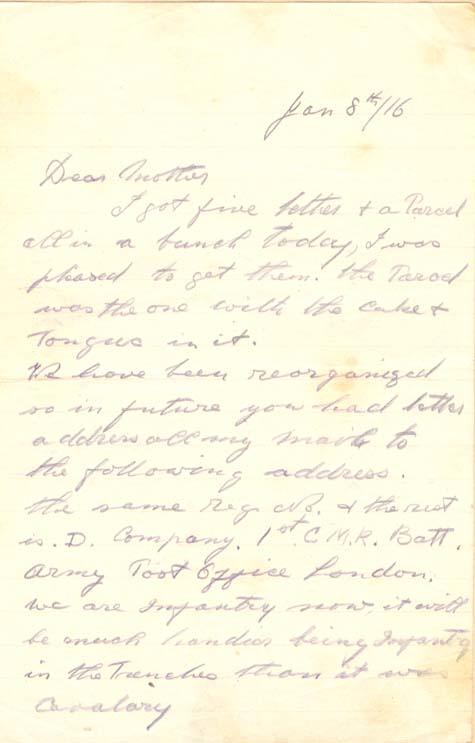 Jan 8th/16
Dear Mother
I got five letters + a Parcel
all in a bunch today, I was
pleased to get them. the Parcel
was the one with the cake +
Tongue in it.
We have been reorganized
so in future you had better
address all my mail to
the following address.
the same reg. No. & the rest
is. D. Company. 1st. C.M.R. Batt.
Army Post Office London.
we are Infantry now, it will
be much handier being Infantry
in the Trenches than it was
Cavalary